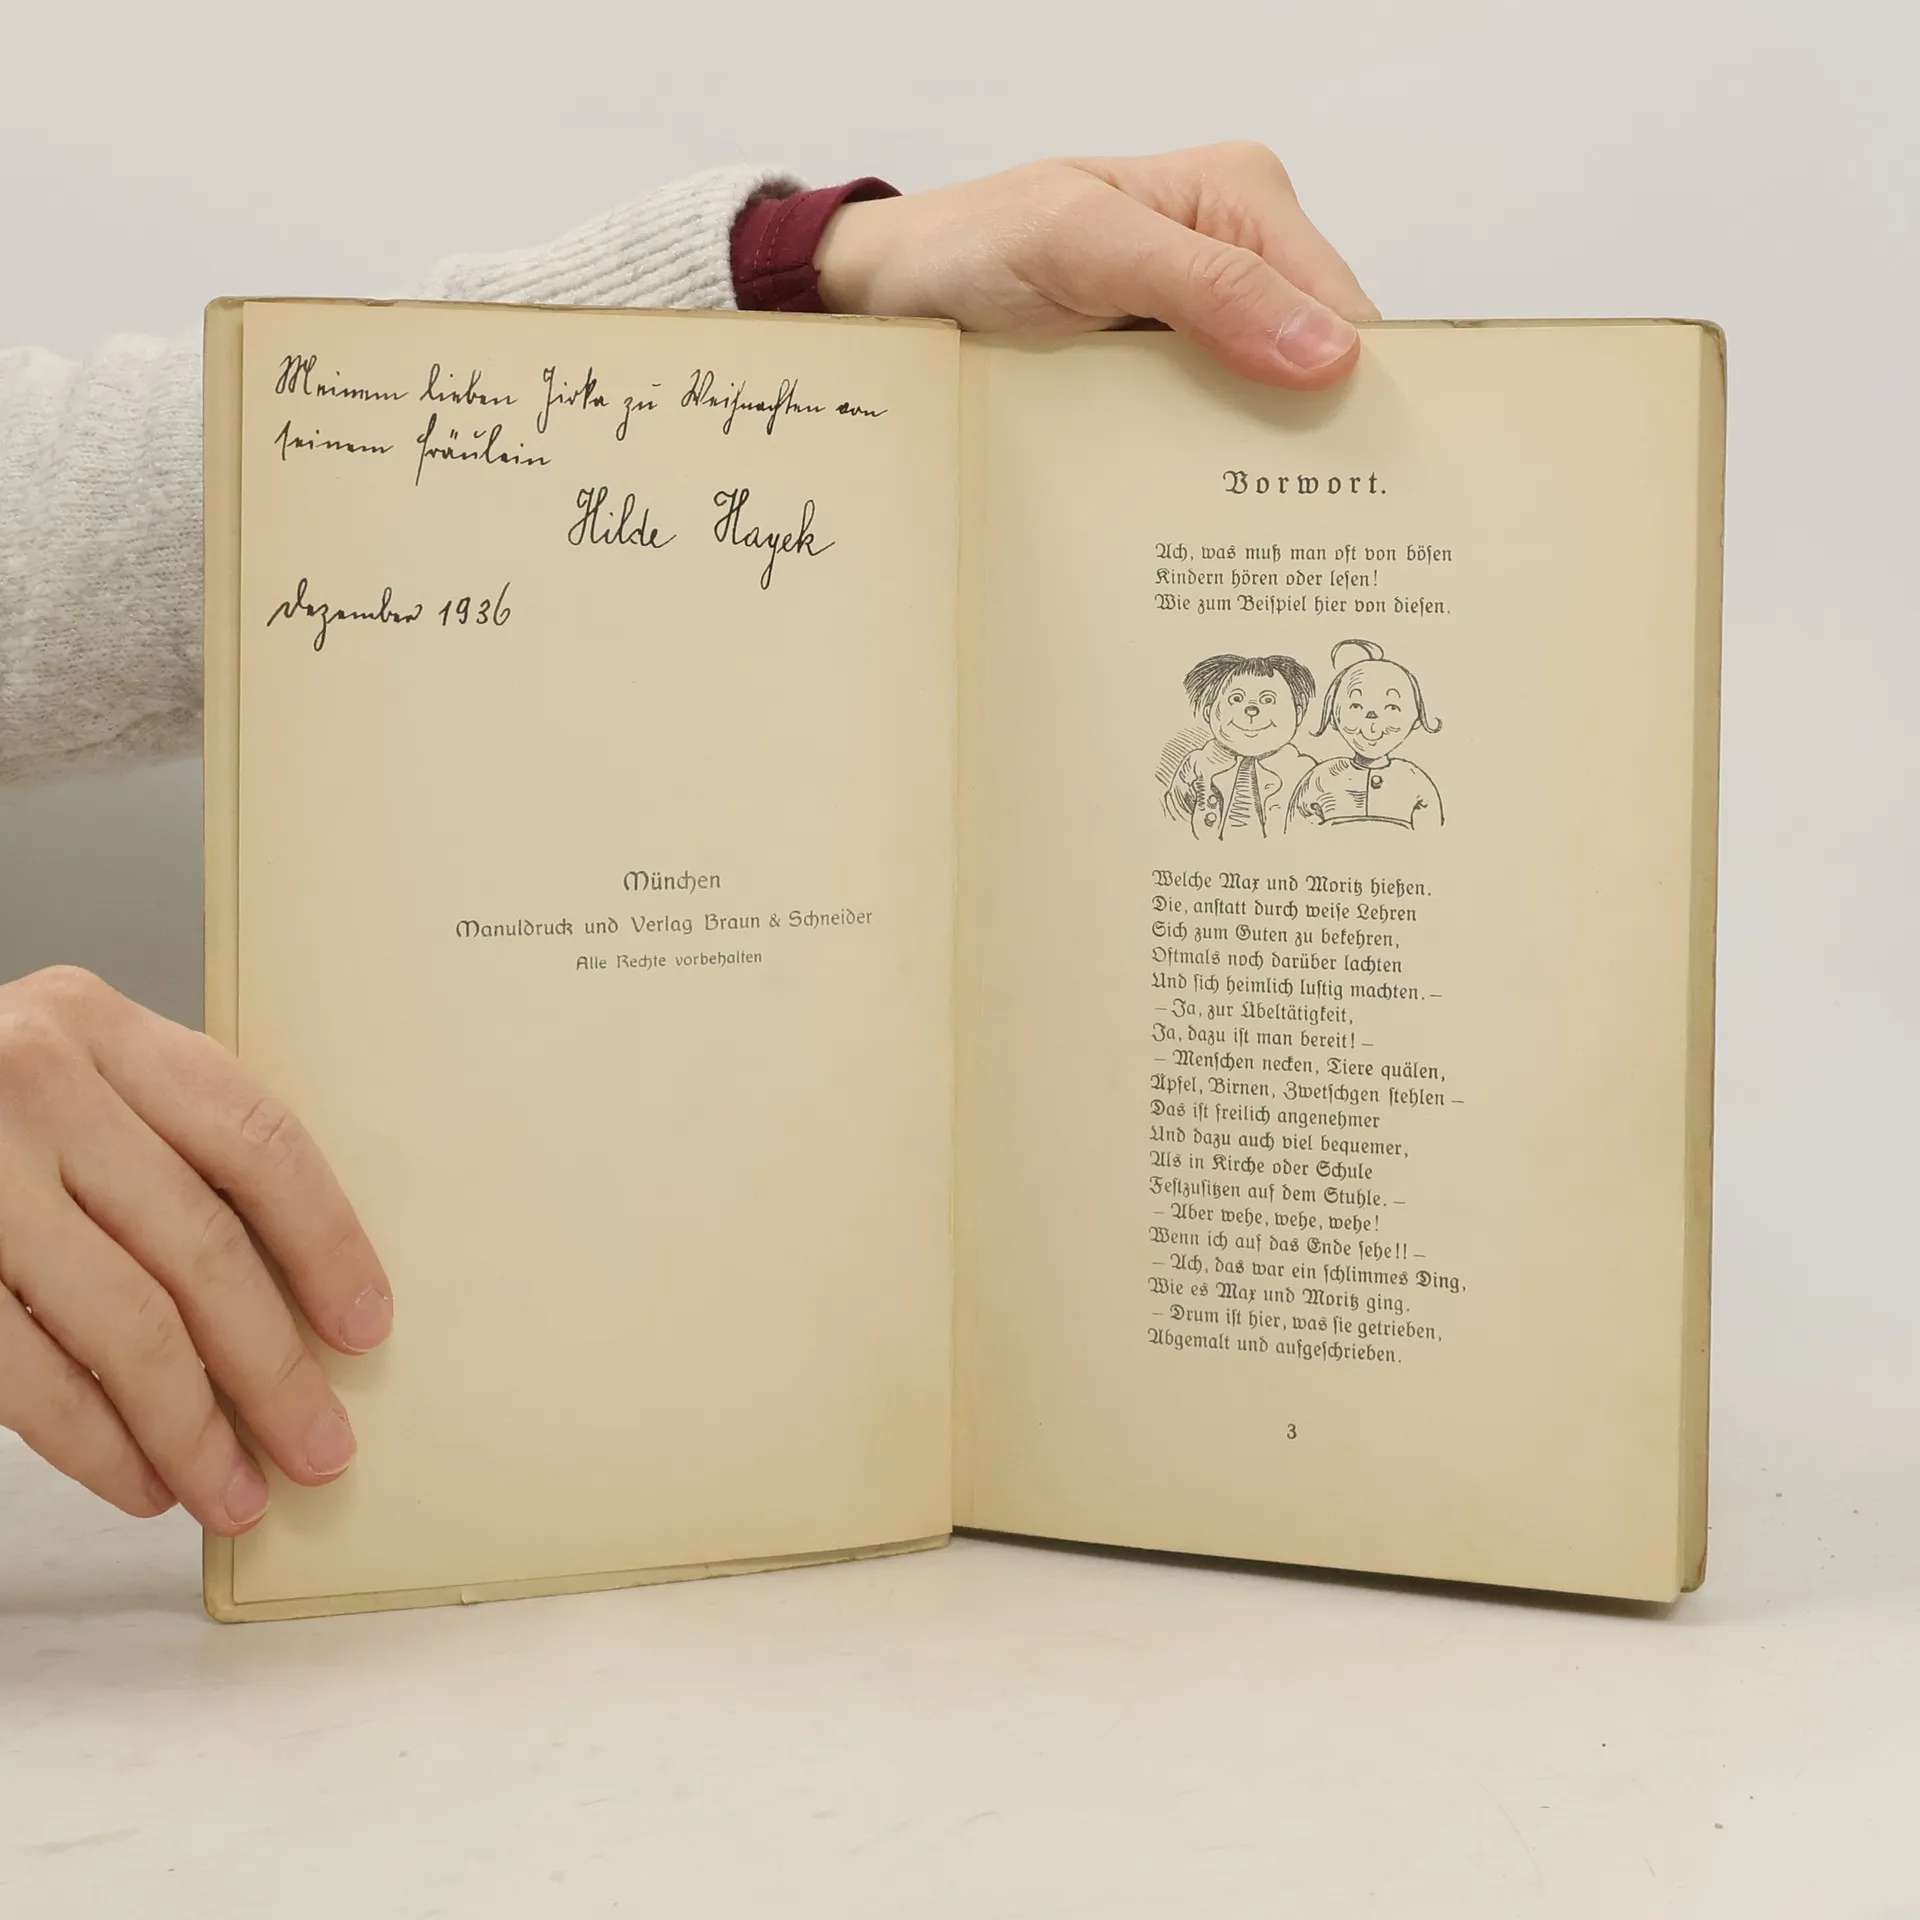 Meinem lieben Jirka zu Weihnachten von
seinem Fräulein
Hilde Hayek
Dezember 1936
München
Manuldruck und Verlag Braun & Schneider
Alle Rechte vorbehalten
Vorwort.
Ach, was muß man oft von bösen
Kindern hören oder lesen!
Wie zum Beispiel hier von diesen,
Welche Max und Moritz hießen.
Die, anstatt durch weise Lehren
Sich zum Guten zu bekehren,
Oftmals noch darüber lachten
Und sich heimlich lustig machten. –
– Ja, zur Übeltätigkeit,
Ja, dazu ist man bereit! –
– Menschen necken, Tiere quälen,
Äpfel, Birnen, Zwetschgen stehlen –
Das ist freilich angenehmer
Und dazu auch viel bequemer,
Als in Kirche oder Schule
Festzusitzen auf dem Stuhle. –
– Aber wehe, wehe, wehe!
Wenn ich auf das Ende sehe!! –
– Ach, das war ein schlimmes Ding,
Wie es Max und Moritz ging.
– Drum ist hier, was sie getrieben,
Abgemalt und aufgeschrieben.
3